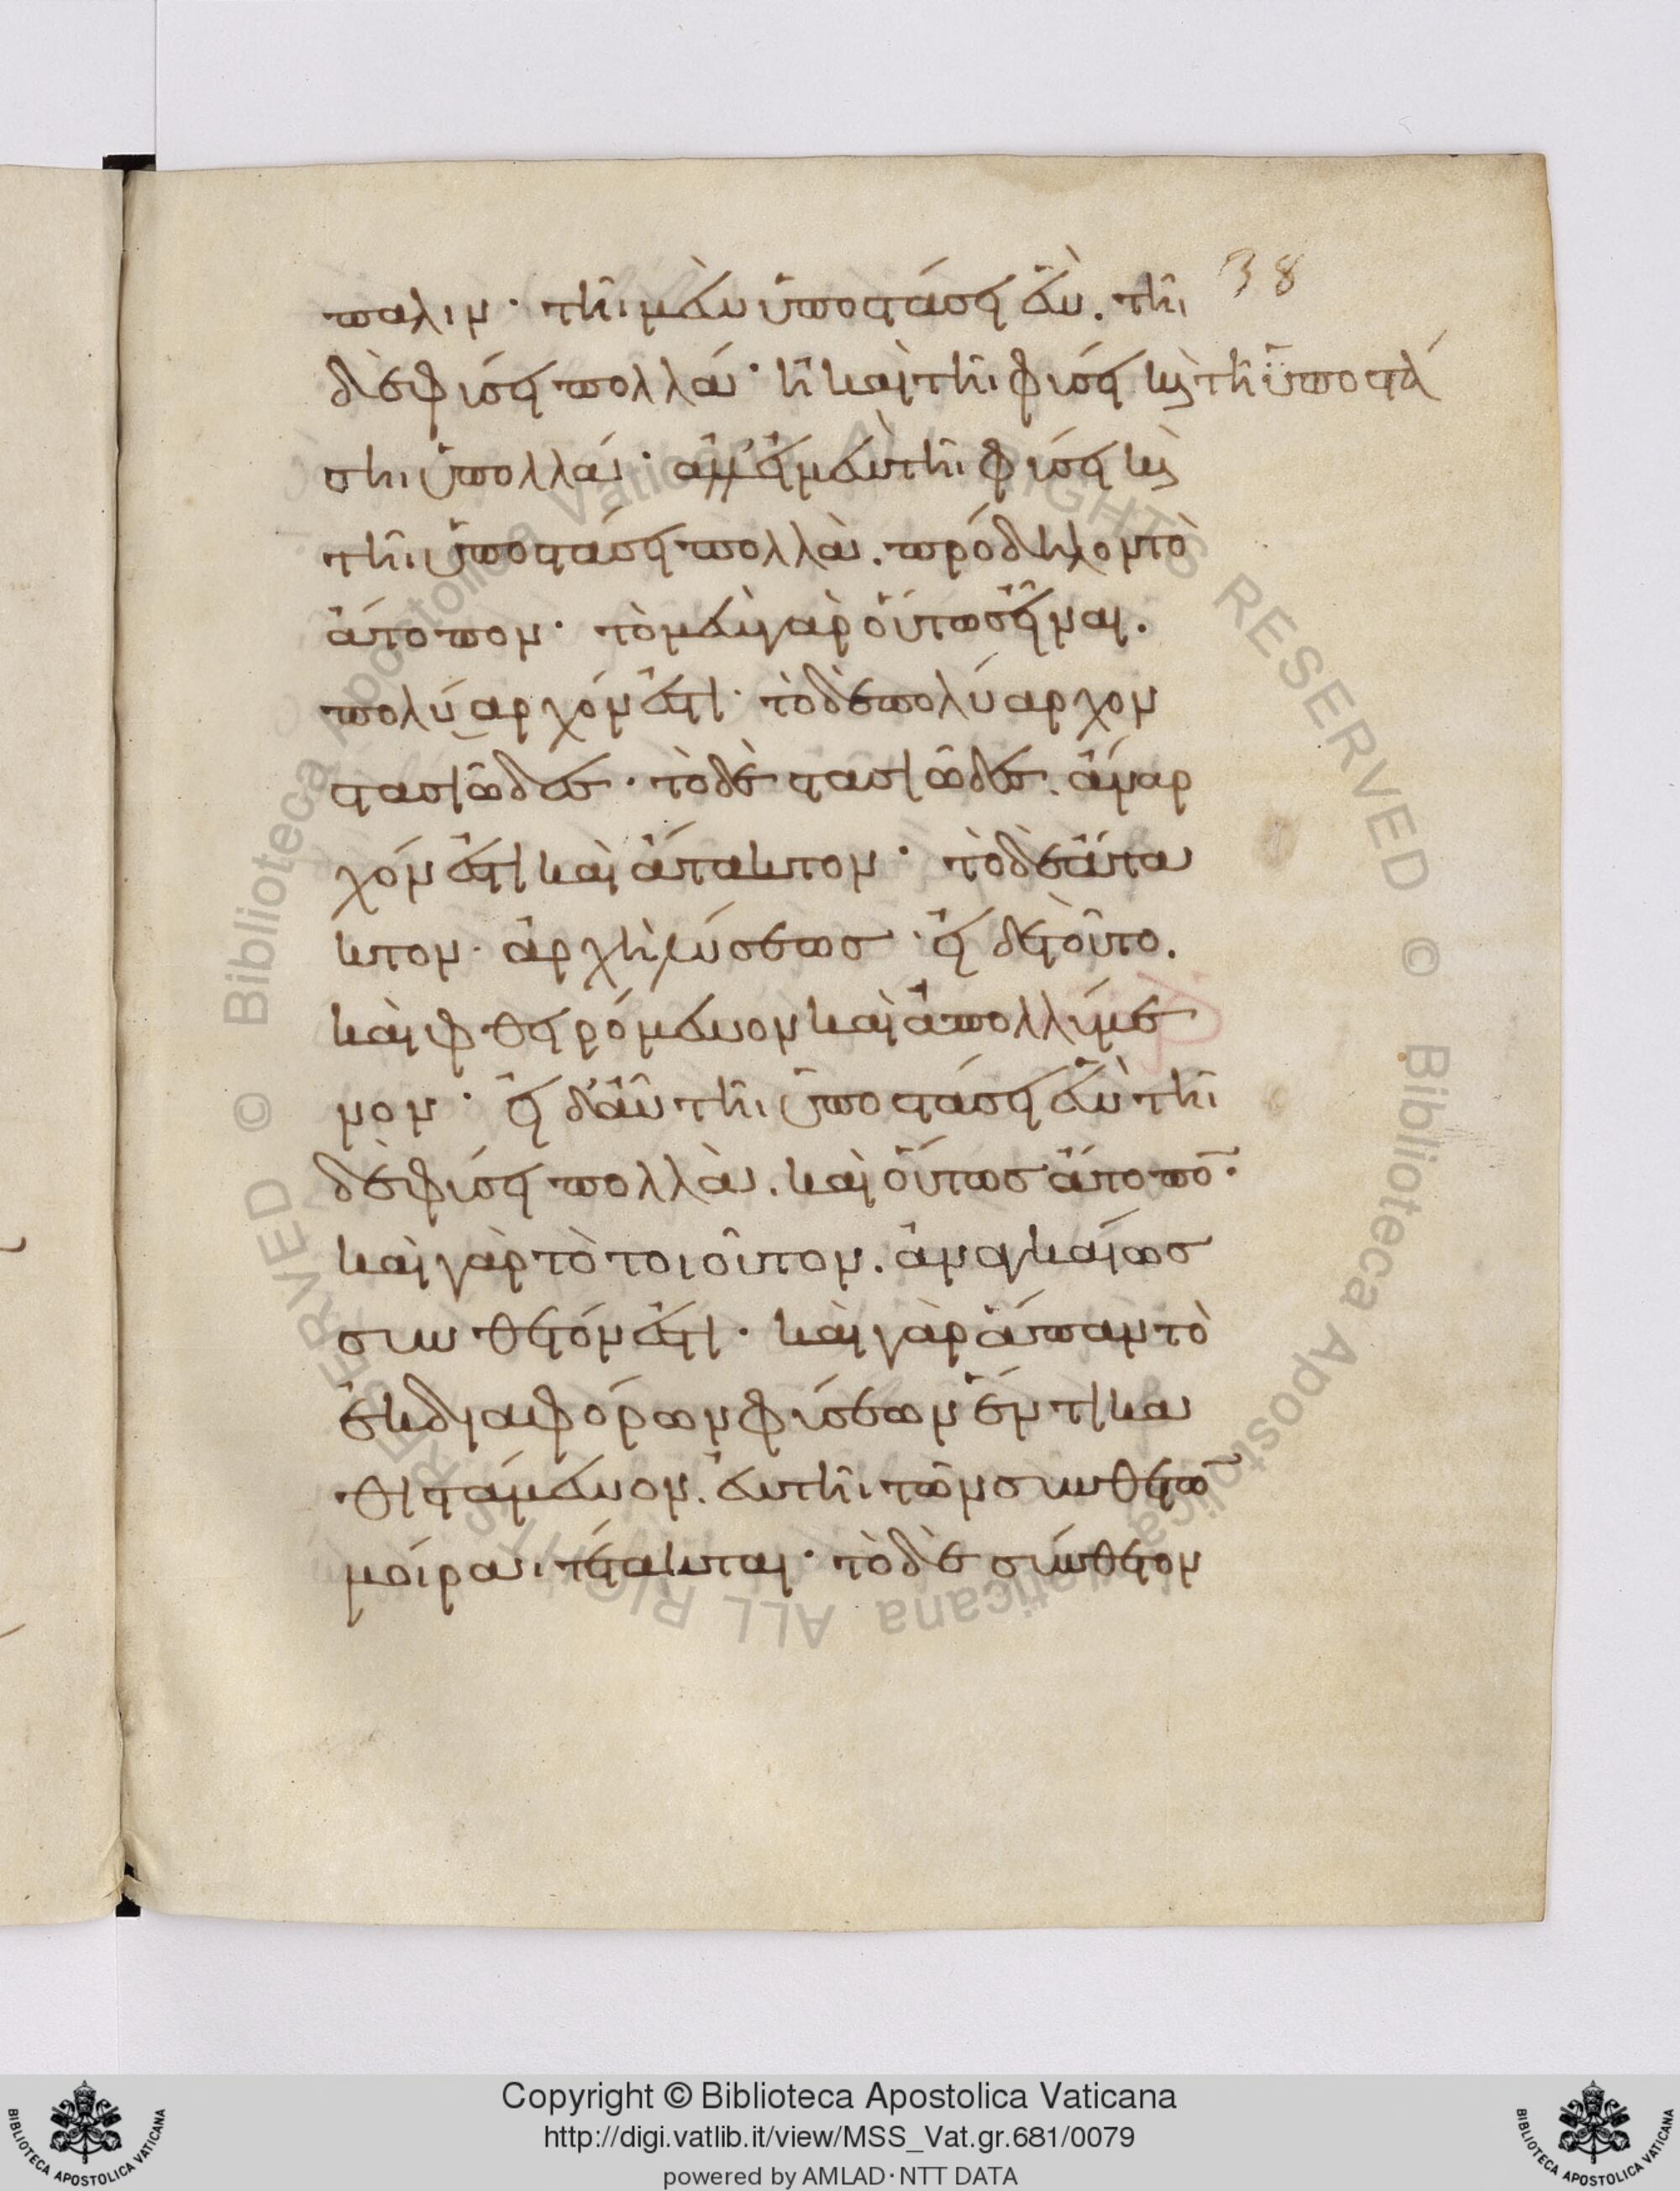 38
παλιν· τῆι μὲν ὑποστάσει ἓν. τῆι
δὲ φύσει πολλά· ἢ καὶ τῆι φύσει κ(αὶ) τῆ ὑποστά
σηι πολλά· ἀλλ' εἰ μὲν τῆι φύσει κ(αὶ)
τῆι ὑποστάσει πολλὰ. πρόδηλον τὸ
ἄτοπον· τὸ μὲν γὰρ οὕτως εἶναι.
πολύαρχόν ἐστι· τὸ δὲ πολύαρχον
στασιῶδες· τὸ δὲ στασιῶδες. ἄναρ
χόν ἐστι καὶ ἄτακτον· τὸ δὲ ἄτα
κτον· ἀρχὴ λύσεως· εἰ δὲ τοῦτο.
καὶ φθειρόμενον καὶ ἀπολλύμε
νον· εἰ δ' αὖ τῆι ὑποστάσει ἓν τῆι
δὲ φύσει πολλὰ. καὶ οὕτως ἄτοπο(ν)·
καὶ γὰρ τὸ τοιοῦτον. ἀναγκαίως
σύνθετόν ἐστι· καὶ γὰρ ἅπαν τὸ
ἐκ διαφόρων φύσεων ἕν τι κα
θιστάμενον. ἐν τῆι τῶν συνθέτω(ν)
μοίραι τέτακται· τὸ δὲ σύνθετον
Copyright © Biblioteca Apostolica Vaticana
http://digi.vatlib.it/view/MSS_Vat.gr.681/0079
powered by AMLAD·NTT DATA